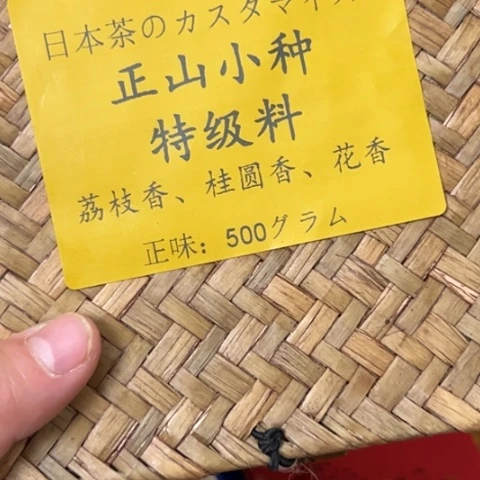 日本茶のカスタマイズ
正山小种
特级料
荔枝香、桂圆香、花香
正味：500グラム